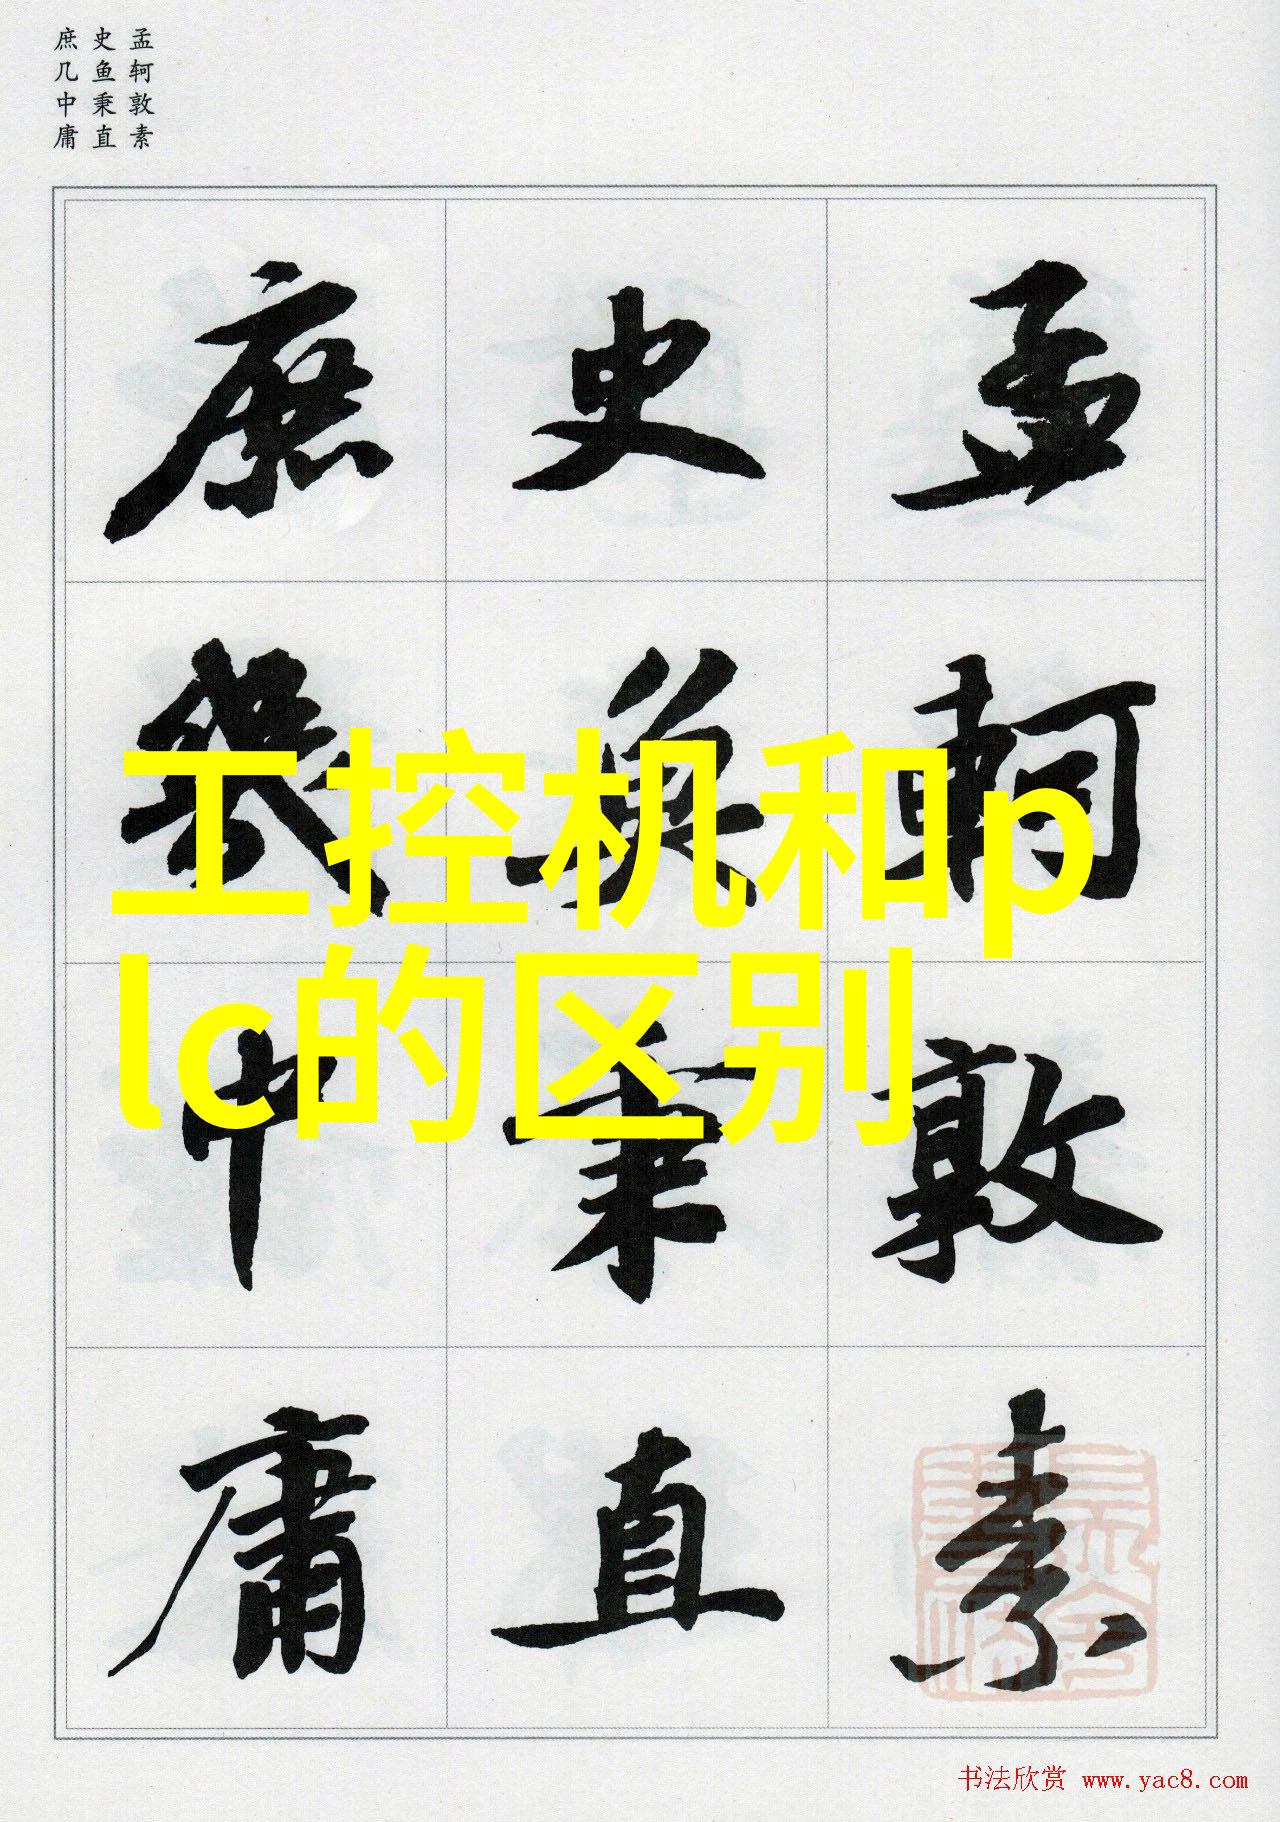 孟轲敦素
史鱼秉直
庶几中庸
孟軻敦素
史魚秉直
庶幾中庸
工控机和p
lc的区别
书法欣赏 www.yac8.com